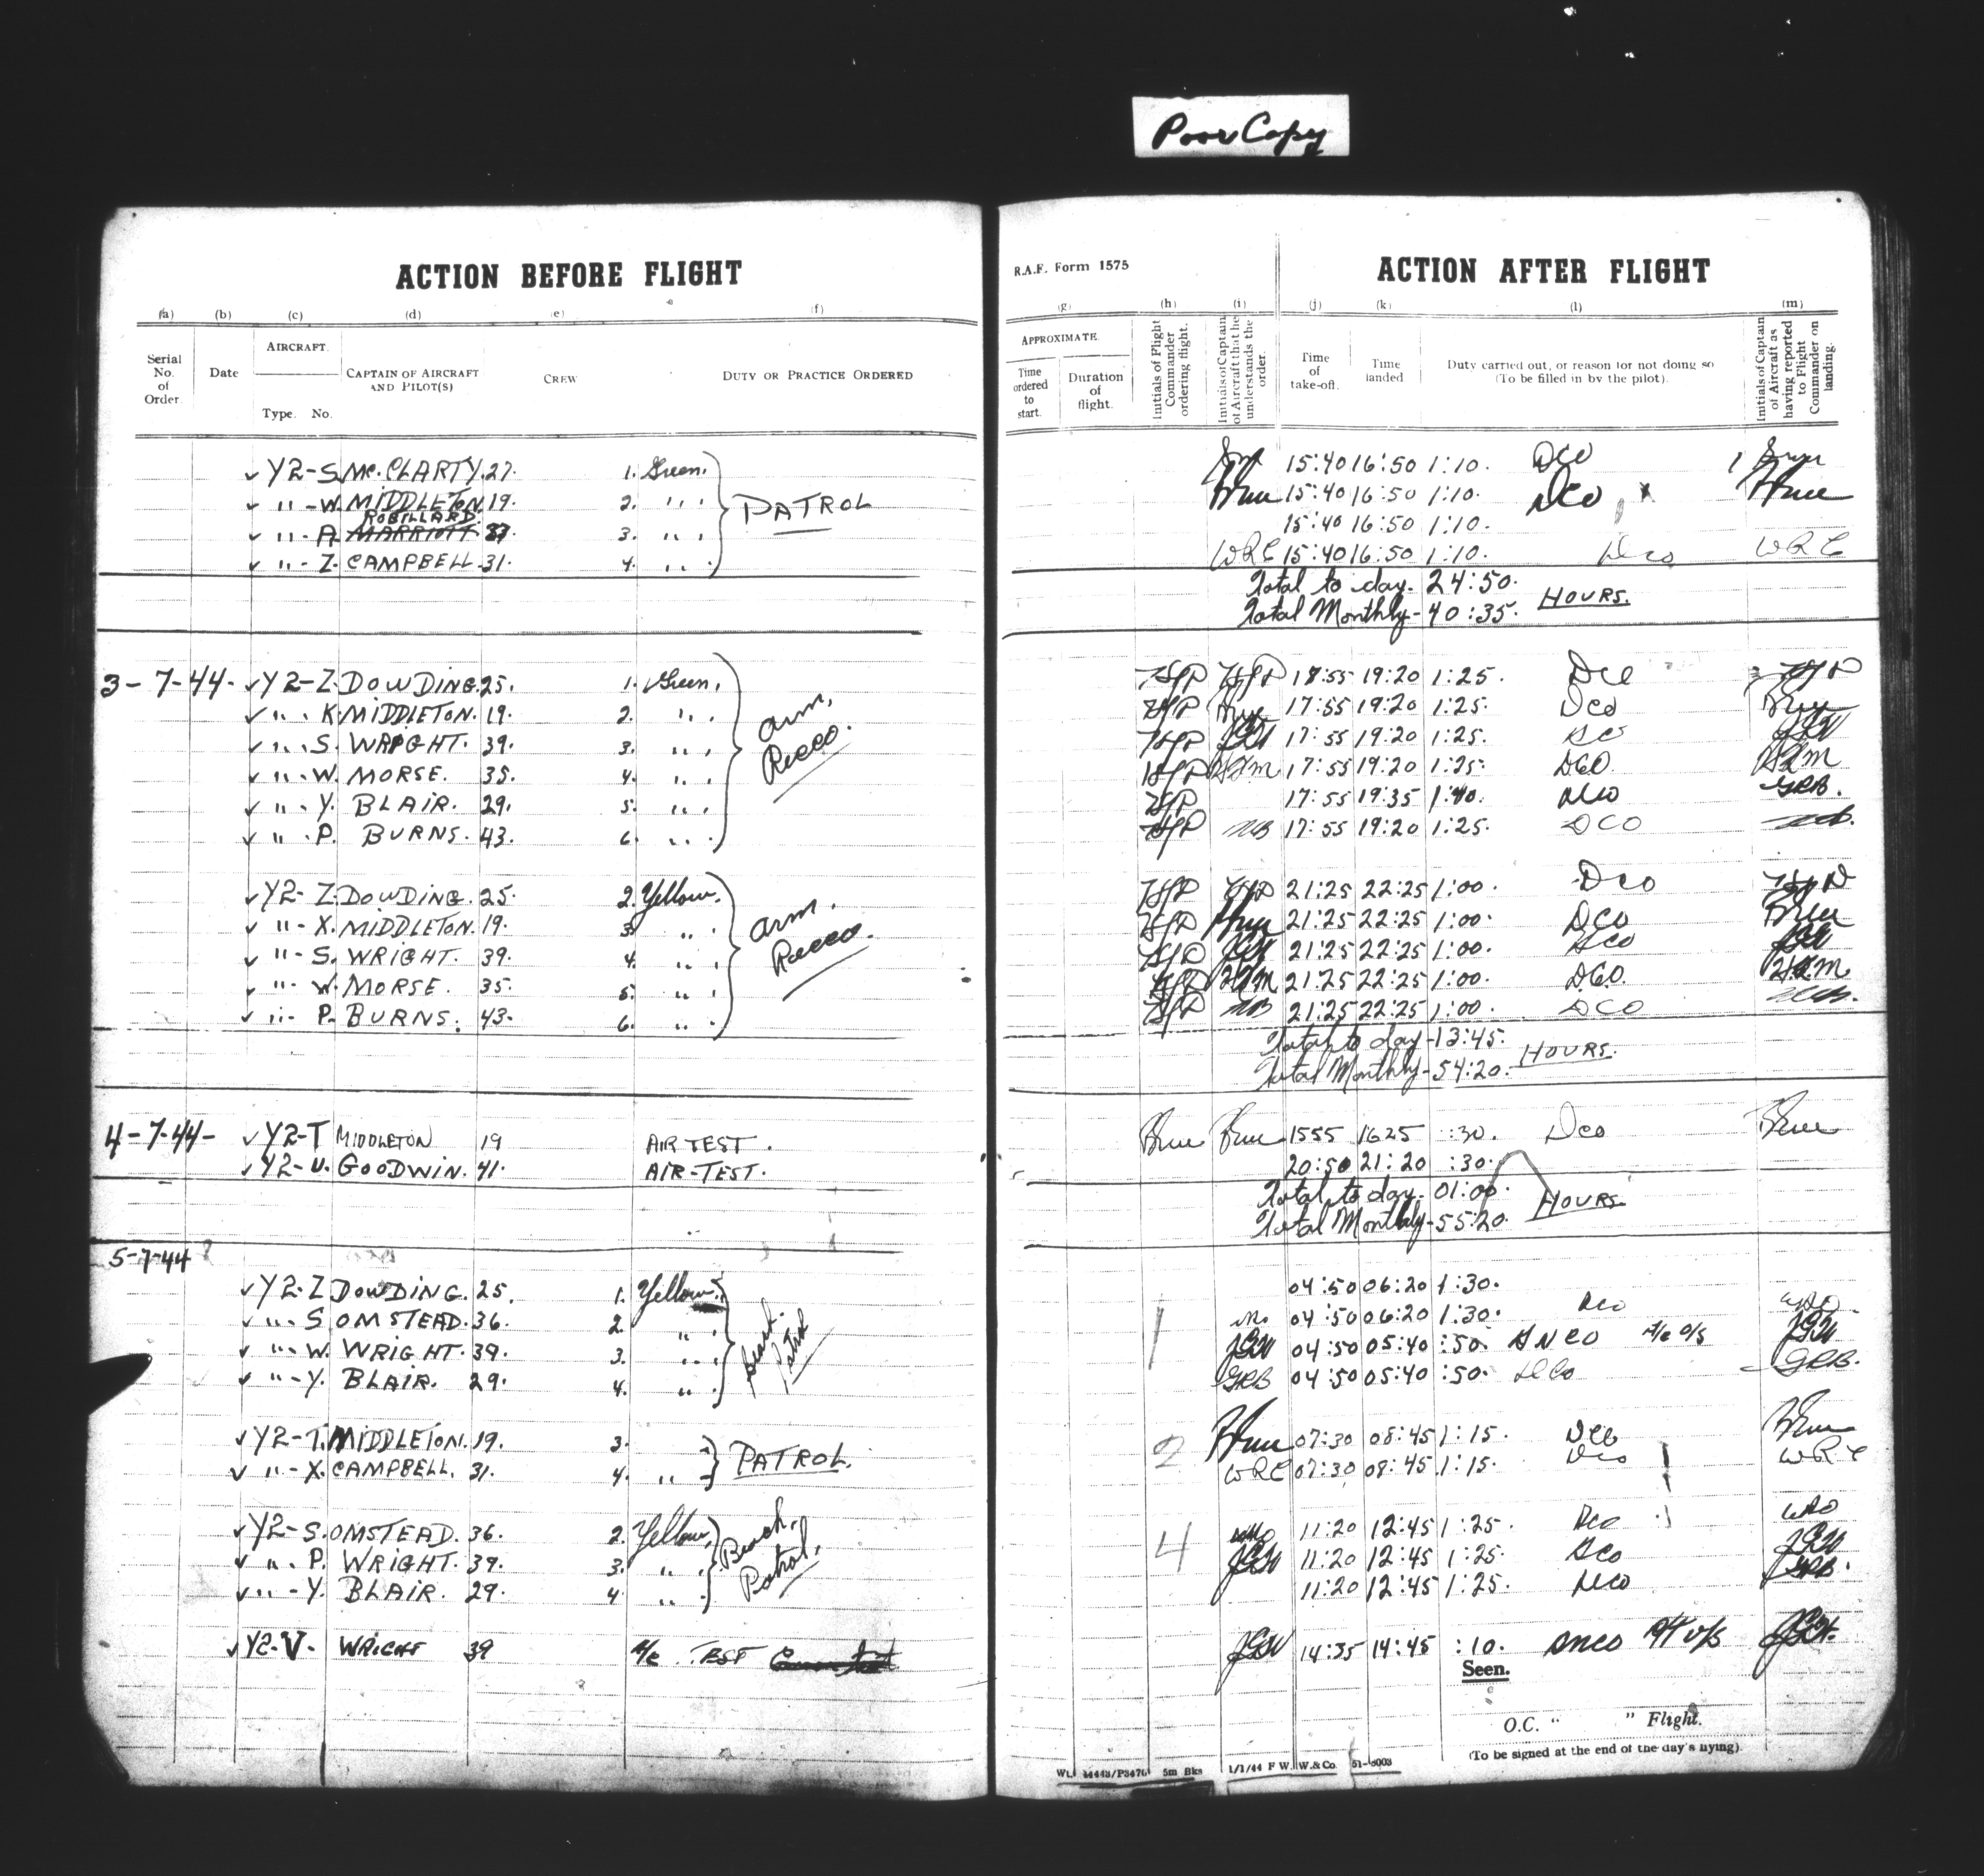 Poor Copy
ACTION BEFORE FLIGHT
(a) (b) (c) (d) (e) (f)
Serial No. of Order.
Date
AIRCRAFT.
Type. No.
CAPTAIN OF AIRCRAFT AND PILOT(S)
CREW
DUTY OR PRACTICE ORDERED
Y2-S. Mc.CLARTY. 27. 1. Green.
" -W. MIDDLETON. 19. 2. " "
ROBILLARD.
" - A. MARRIOTT 3. " "
" - Z. CAMPBELL. 31. 4. " "
PATROL
3-7-44- Y2-Z. DOWDING. 25. 1. Green.
" . K. MIDDLETON. 19. 2. " "
" . S. WRIGHT. 39. 3. " "
" -W. MORSE. 35. 4. " "
" - Y. BLAIR. 29. 5. " "
" . P. BURNS. 43. 6. " "
Arm. Recco.
Y2-Z. DOWDING. 25. 2. Yellow.
" - X. MIDDLETON. 19. 3. " "
" - S. WRIGHT. 39. 4. " "
" - W. MORSE. 35. 5. " "
" - P. BURNS. 43. 6. " "
Arm. Recco.
4-7-44- Y2-T MIDDLETON 19 AIR TEST.
Y2-U. GOODWIN. 41. AIR-TEST.
5-7-44
Y2-Z DOWDING. 25. 1. Yellow.
" - S OMSTEAD. 36. 2. " "
" - W. WRIGHT. 39. 3. " "
" - Y. BLAIR. 29. 4. " "
Patrol
Y2-T. MIDDLETON. 19. 3. "
" - X. CAMPBELL. 31. 4. " "
PATROL.
Y2-S. OMSTEAD. 36. 2. Yellow.
" . P. WRIGHT. 39. 3. " "
" - Y. BLAIR. 29. 4. " "
Beach. Patrol.
Y2-V- WRIGHT 39 A/C TEST
R.A.F. Form 1575
ACTION AFTER FLIGHT
(g) (h) (i) (j) (k) (l) (m)
APPROXIMATE.
Time ordered to start.
Duration of flight.
Initials of Flight Commander ordering flight.
Initials of Captain of Aircraft that he understands the order.
Time of take-off.
Time landed
Duty carried out, or reason for not doing so (To be filled in by the pilot).
Initials of Captain of Aircraft as having reported to Flight Commander on landing.
15:40 16:50 1:10. DCO
15:40 16:50 1:10. DCO
15:40 16:50 1:10.
WRC 15:40 16:50 1:10. DCO WRC
Total to day. 24:50.
Total Monthly- 40:35. HOURS.
HJD HJD 18:55 19:20 1:25. DCO HJD
HJD 17:55 19:20 1:25. DCO
HJD JGW 17:55 19:20 1:25. DCO JGW
HJD 17:55 19:20 1:25. DCO.
HJD 17:55 19:35 1:40. DCO GRB.
HJD 17:55 19:20 1:25. DCO
HJD HJD 21:25 22:25 1:00. DCO HJD
HJD 21:25 22:25 1:00. DCO
HJD JGW 21:25 22:25 1:00. DCO JGW
HJD 21:25 22:25 1:00. DCO.
HJD 21:25 22:25 1:00. DCO
Total to day-13:45.
Total Monthly-54:20. HOURS.
1555 1625 :30. DCO
20:50 21:20 :30.
Total to day- 01:00.
Total Monthly-55:20. HOURS.
1
04:50 06:20 1:30.
04:50 06:20 1:30. DCO
JGW 04:50 05:40 :50. DNCO A/C O/S JGW
GRB 04:50 05:40 :50. DCO GRB.
2
07:30 08:45 1:15. DCO
WRC 07:30 08:45 1:15. DCO WRC
4
11:20 12:45 1:25. DCO
JGW 11:20 12:45 1:25. DCO JGW
11:20 12:45 1:25. DCO GRB.
JGW 14:35 14:45 :10. DNCO R/T U/S JGW.
Seen.
O.C. " " Flight.
(To be signed at the end of the day's flying).
Wt. 44443/P3476 5m Bks 1/1/44 F W. W. & Co. 51-8003